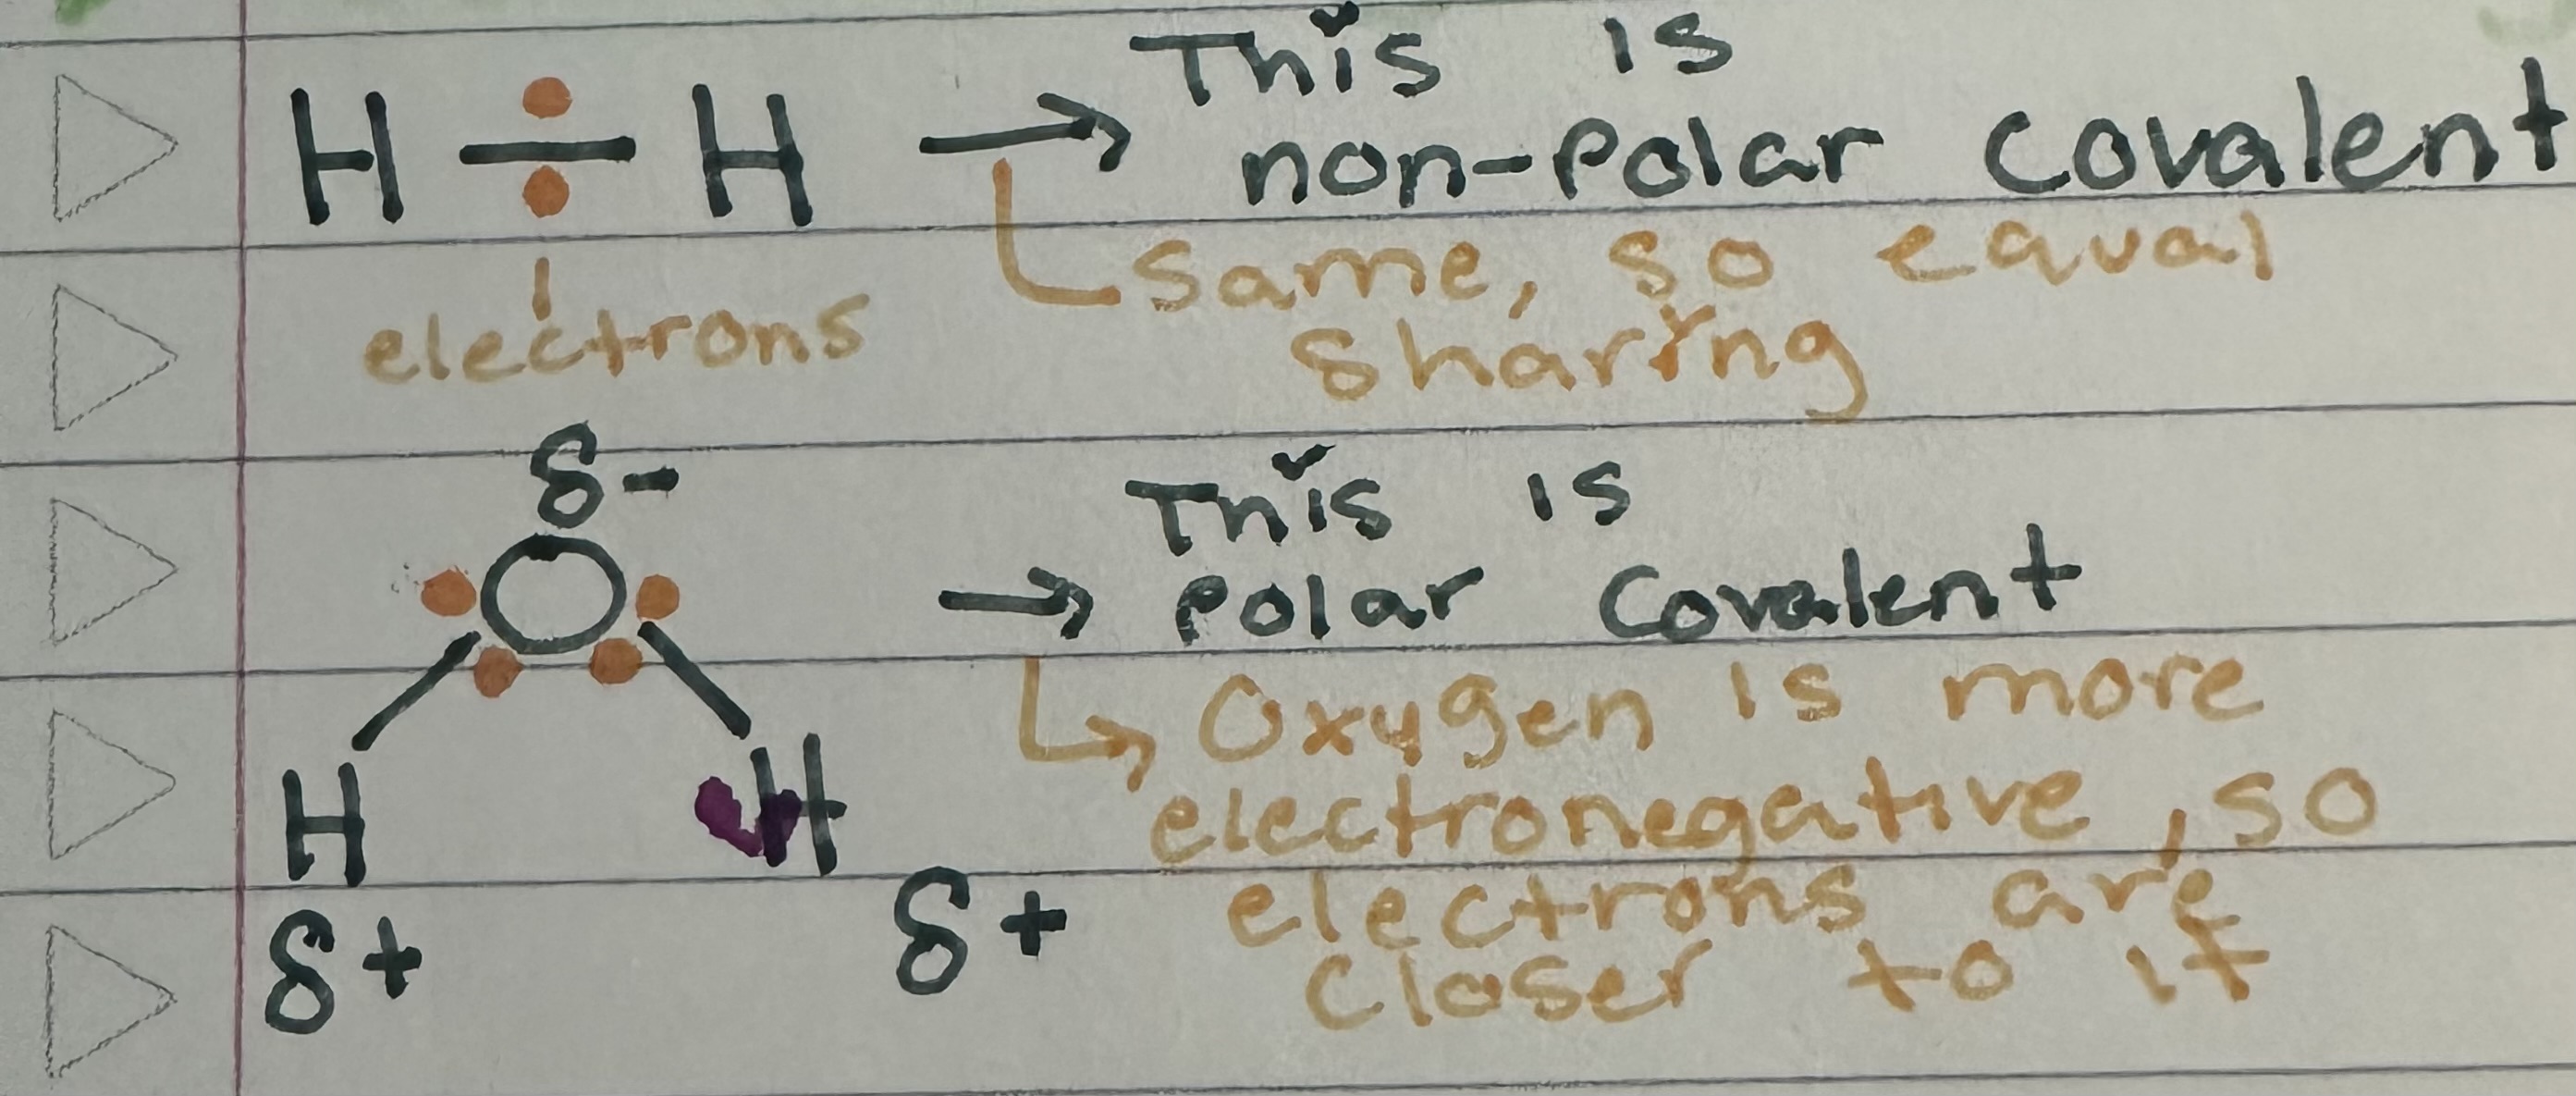 H — H → This is
non-polar covalent
same, so equal
sharing
electrons
δ-
O
H H
δ+ δ+
→ This is
polar covalent
Oxygen is more
electronegative, so
electrons are
closer to it